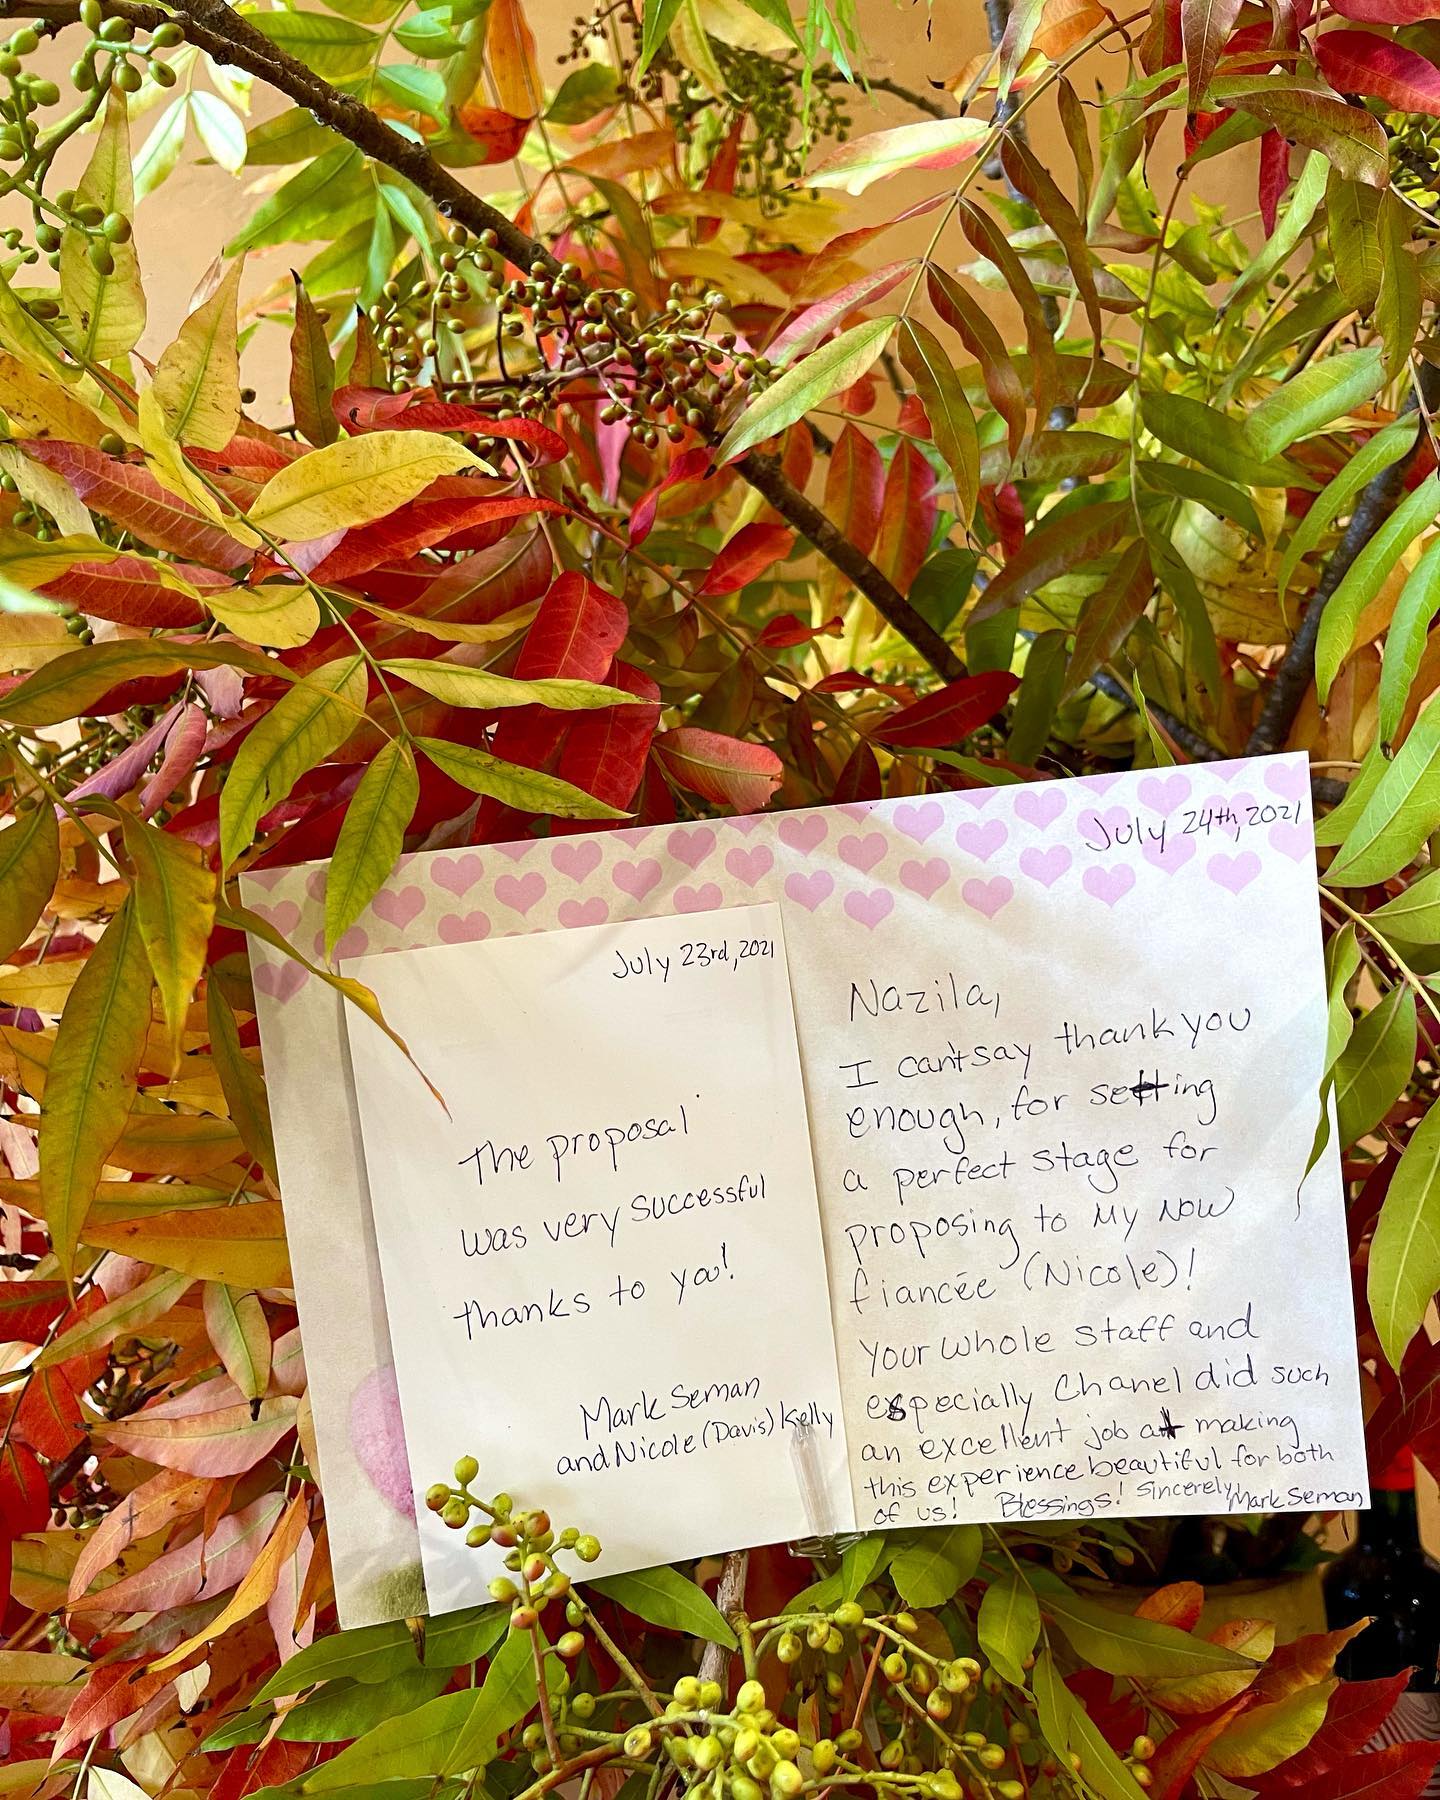 July 23rd, 2021
The proposal
was very successful
thanks to you!
Mark Seman
and Nicole (Davis) Kelly
July 24th, 2021
Nazila,
I can't say thank you
enough, for setting
a perfect stage for
proposing to My Now
fiancée (Nicole)!
Your whole staff and
especially Chanel did such
an excellent job at making
this experience beautiful for both
of us! Blessings! Sincerely, Mark Seman